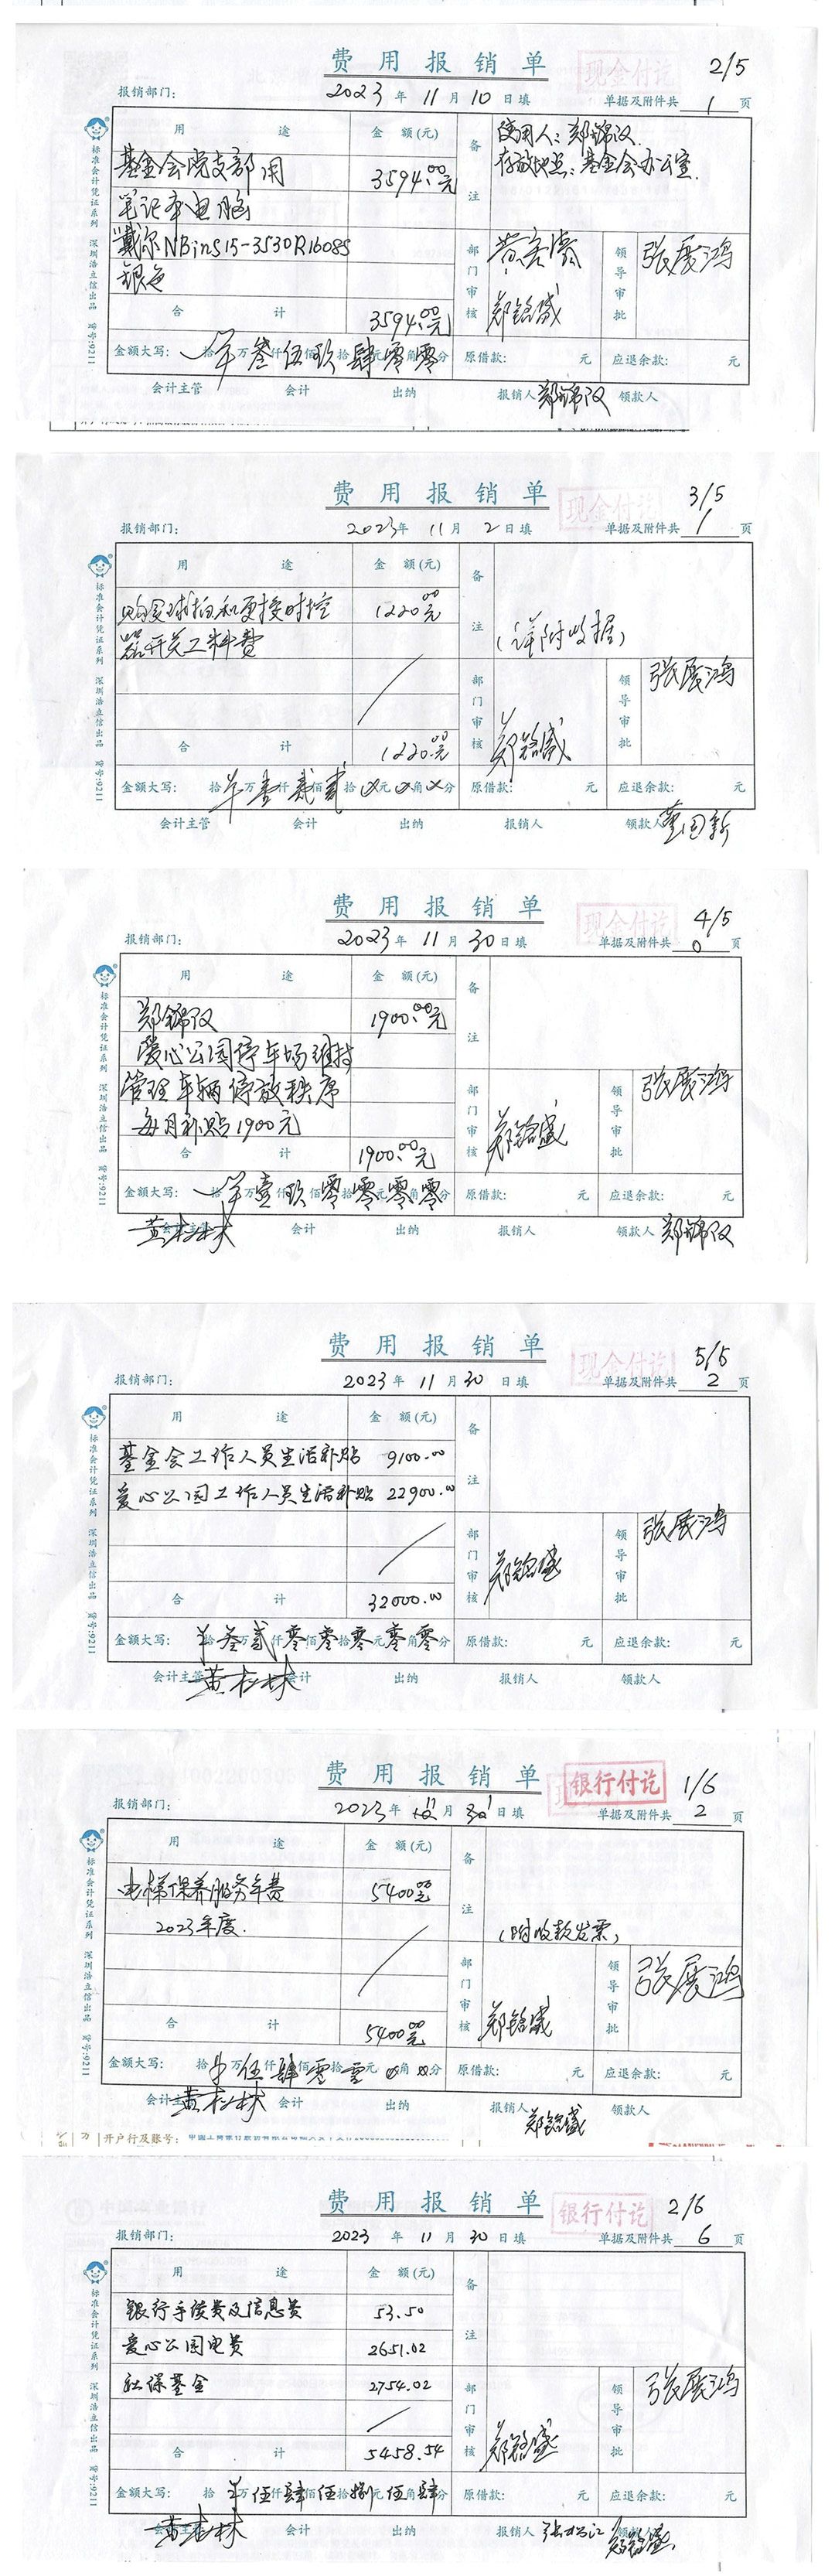 费用报销单
现金付讫
2/5
报销部门: 2023年11月10日填 单据及附件共 1 页
用途 金额(元) 备注
使用人:郑锦汉
存放地点:基金会办公室.
基金会党支部用 3594.00元
笔记本电脑
戴尔NBinS15-3530R1608S
银色
部门审核 郑铭盛
领导审批 张展鸿
合计 3594.00元
金额大写: 拾万叁仟伍佰玖拾肆元零角零分 原借款: 元 应退余款: 元
会计主管 会计 出纳 报销人 郑锦汉 领款人
标准会计凭证系列 深圳浩立信出品 货号:9211
费用报销单
现金付讫
3/5
报销部门: 2023年11月2日填 单据及附件共 1 页
用途 金额(元) 备注
购买球拍和更换时控 1220.00元
器开关工料费
(详附收据)
部门审核 郑铭盛
领导审批 张展鸿
合计 1220.00元
金额大写: 拾万壹仟贰佰贰拾元角分 原借款: 元 应退余款: 元
会计主管 会计 出纳 报销人 领款人
标准会计凭证系列 深圳浩立信出品 货号:9211
费用报销单
现金付讫
4/5
报销部门: 2023年11月30日填 单据及附件共 0 页
用途 金额(元) 备注
郑锦汉 1900.00元
爱心公园停车场维持
管理车辆停放秩序
每月补贴1900元
部门审核 郑铭盛
领导审批 张展鸿
合计 1900.00元
金额大写: 拾万壹仟玖佰零拾零元零角零分 原借款: 元 应退余款: 元
会计主管 会计 出纳 报销人 领款人 郑锦汉
标准会计凭证系列 深圳浩立信出品 货号:9211
费用报销单
现金付讫
5/5
报销部门: 2023年11月30日填 单据及附件共 2 页
用途 金额(元) 备注
基金会工作人员生活补贴 9100.00
爱心公园工作人员生活补贴 22900.00
部门审核 郑铭盛
领导审批 张展鸿
合计 32000.00
金额大写: 拾叁万贰仟零佰零拾零元零角零分 原借款: 元 应退余款: 元
会计主管 会计 出纳 报销人 领款人
标准会计凭证系列 深圳浩立信出品 货号:9211
费用报销单
银行付讫
1/6
报销部门: 2023年11月1日填 单据及附件共 2 页
用途 金额(元) 备注
电梯保养服务年费 5400.00元
2023年度.
(附收款发票)
部门审核 郑铭盛
领导审批 张展鸿
合计 5400.00元
金额大写: 拾万伍仟肆佰零拾零元角分 原借款: 元 应退余款: 元
会计主管 会计 出纳 报销人 郑铭盛 领款人
标准会计凭证系列 深圳浩立信出品 货号:9211
开户行及账号:
费用报销单
银行付讫
2/6
报销部门: 2023年11月30日填 单据及附件共 6 页
用途 金额(元) 备注
银行手续费及信息费 53.50
爱心公园电费 2651.02
社保基金 2754.02
部门审核 郑铭盛
领导审批 张展鸿
合计 5458.54
金额大写: 拾万伍仟肆佰伍拾捌元伍角肆分 原借款: 元 应退余款: 元
会计主管 会计 出纳 报销人 领款人 郑铭盛
标准会计凭证系列 深圳浩立信出品 货号:9211